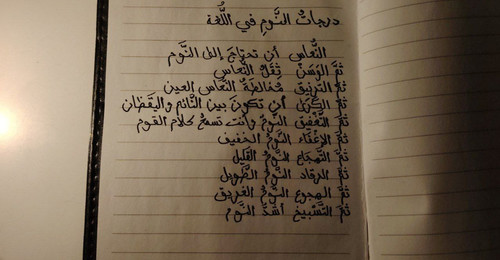 درجاتُ النَّومِ في اللُّغة
النُّعاس أن تحتاجَ إلى النَّوم
ثمَّ الوَسَنُ ثِقَلُ النُّعاسِ
ثمَّ التَّرنيق مُخالطَةُ النُّعاسِ العين
ثمَّ الكَرَى أن تكونَ بين النَّائم واليَقظان
ثمَّ التَّغفيق النَّومُ وأنت تسمعُ كلام القوم
ثمَّ الإغْفَاء النَّومُ الخفيف
ثمَّ التَّهجَاع النَّومُ القليل
ثمَّ الرقاد النَّومُ الطَّويل
ثمَّ الهجوع النَّومُ الغريق
ثمَّ التَّسْبيخ أشدُّ النَّوم